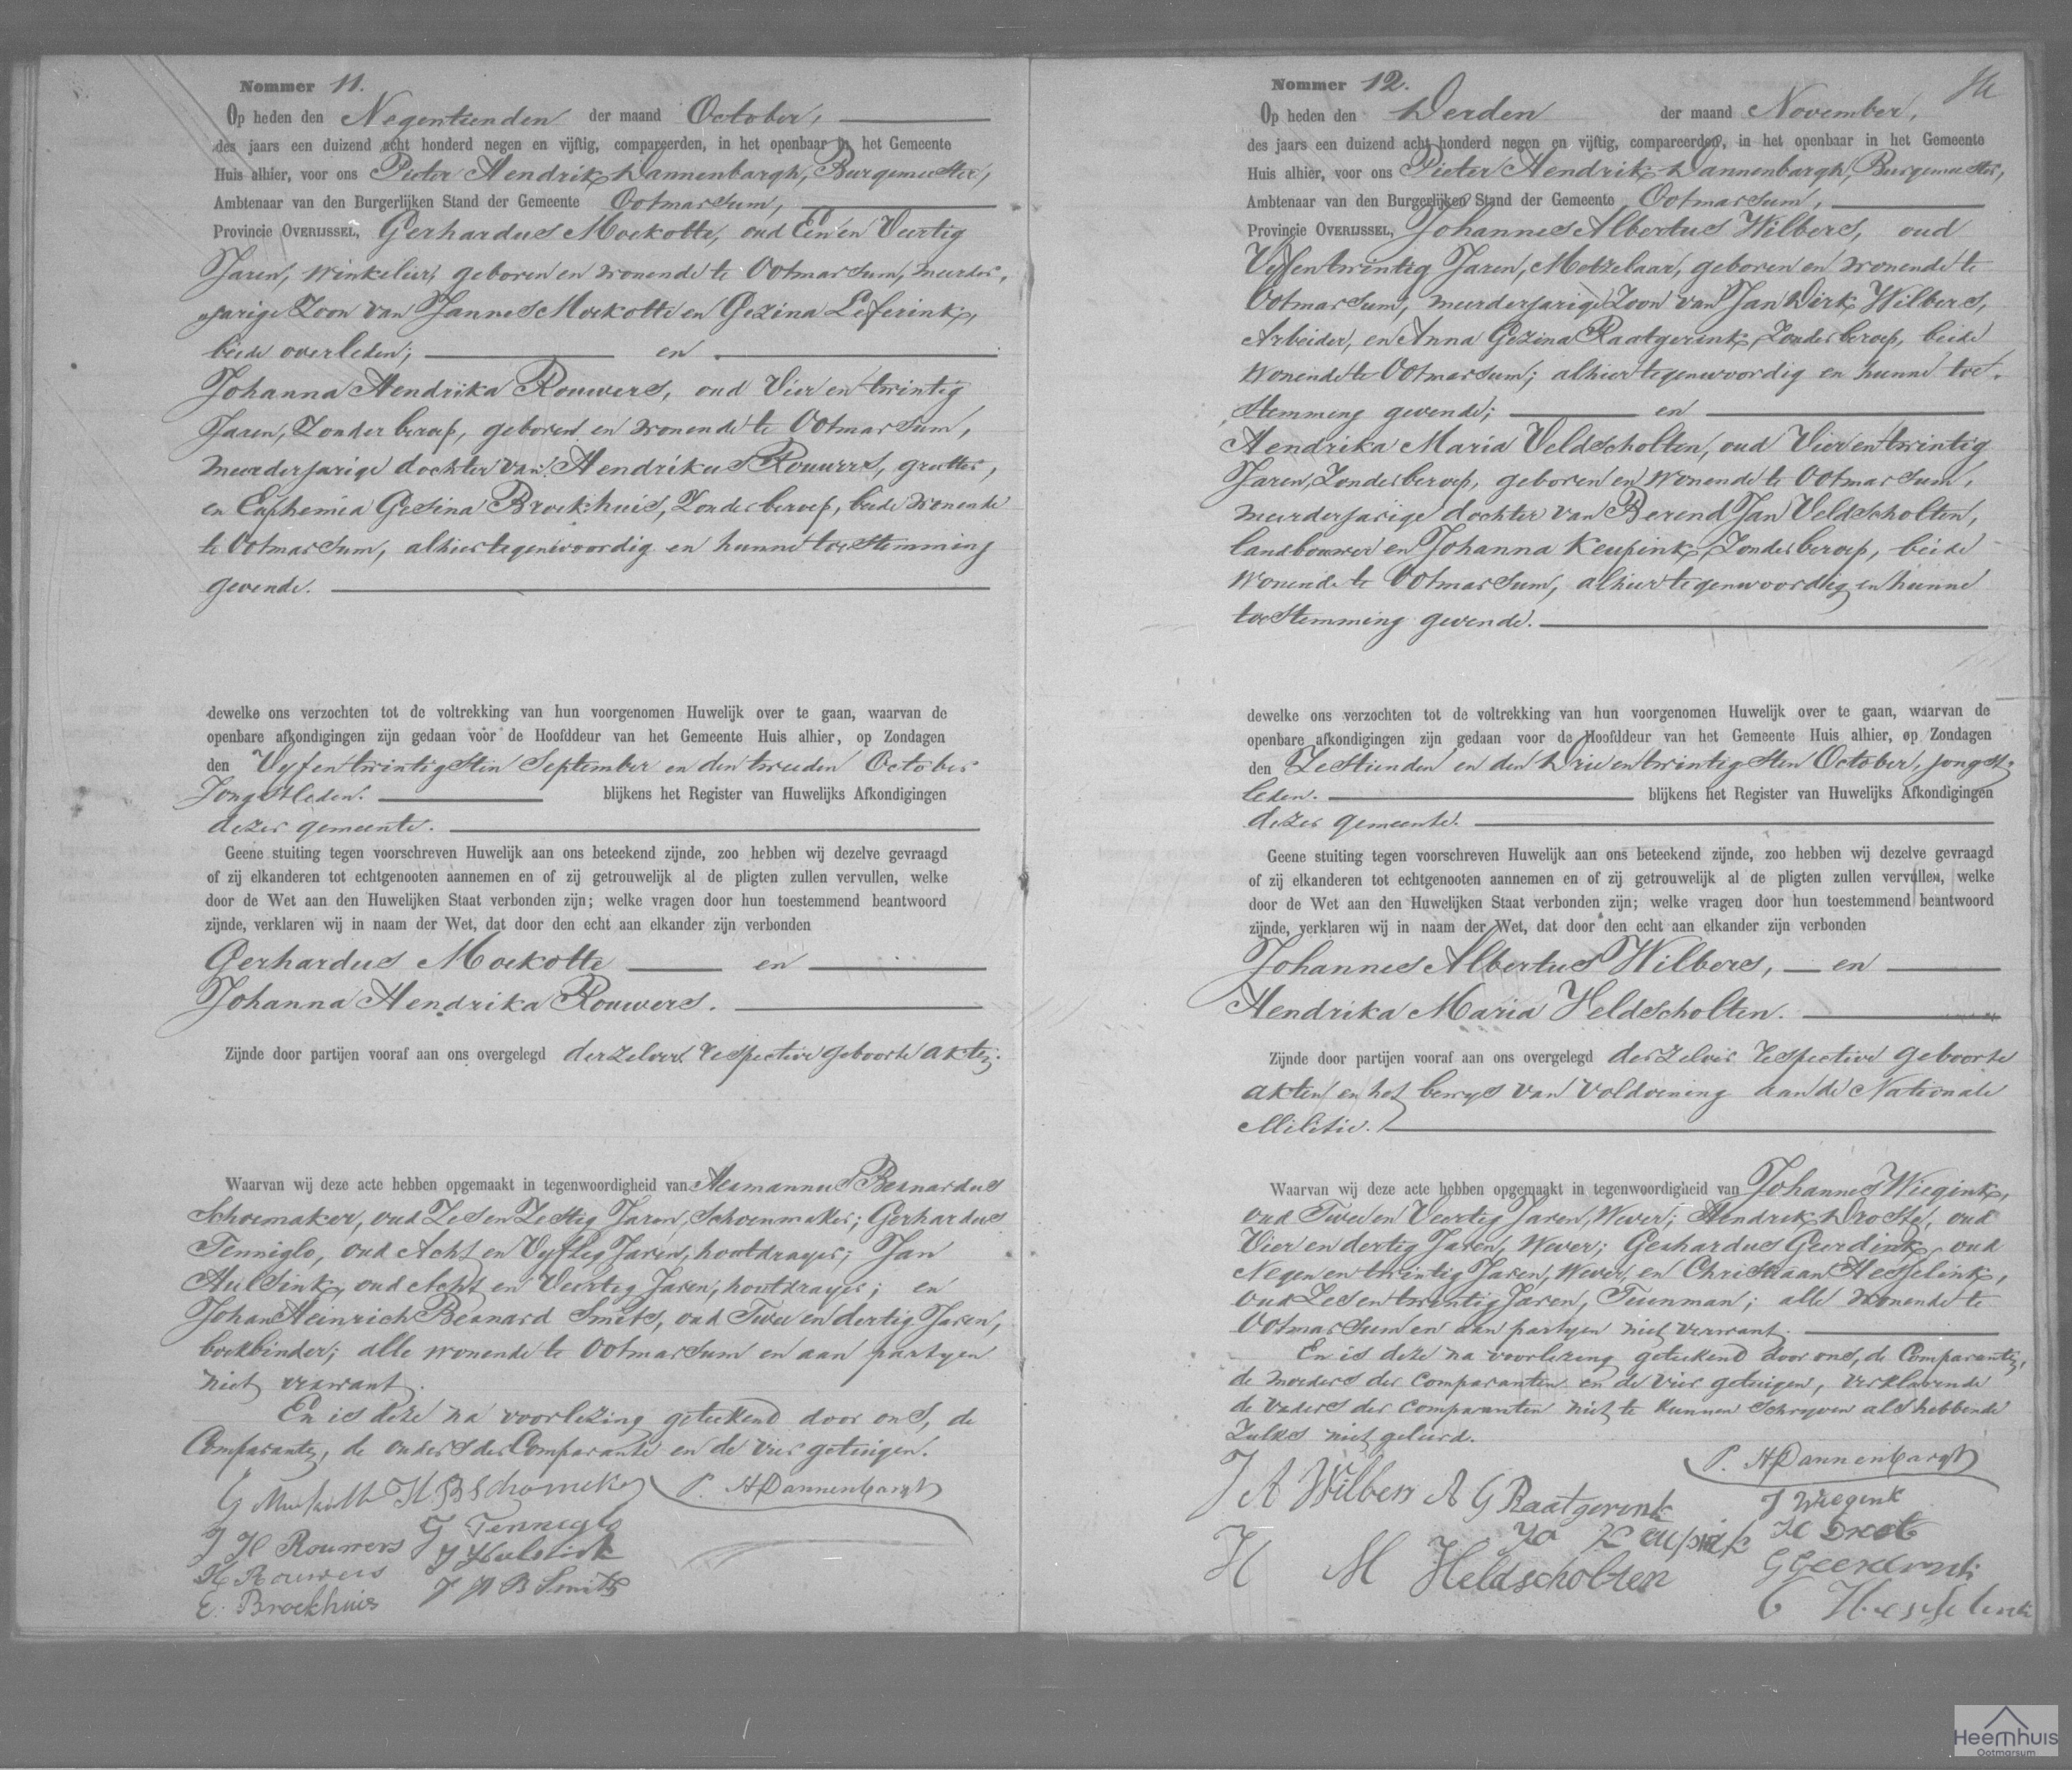 Nommer 11.
Op heden den Negentienden der maand October,
des jaars een duizend acht honderd negen en vijftig, compareerden, in het openbaar in het Gemeente
Huis alhier, voor ons Pieter Hendrik Dannenbargh, Burgemeester,
Ambtenaar van den Burgerlijken Stand der Gemeente Ootmarsum,
Provincie OVERIJSSEL, Gerhardus Moekotte, oud Een en Veertig
Jaren, Winkelier, geboren en wonende te Ootmarsum, meerder-
jarige Zoon van Jannes Moekotte en Gezina Leferink,
beide overleden; en
Johanna Hendrika Rouwers, oud Vier en twintig
Jaren, Zonder beroep, geboren en wonende te Ootmarsum,
meerderjarige dochter van Hendrikus Rouwers, grutter,
en Euphemia Gesina Broekhuis, Zonder beroep, beide wonende
te Ootmarsum, alhier tegenwoordig en hunne toestemming
gevende.
dewelke ons verzochten tot de voltrekking van hun voorgenomen Huwelijk over te gaan, waarvan de
openbare afkondigingen zijn gedaan voor de Hoofddeur van het Gemeente Huis alhier, op Zondagen
den Vyfentwintigsten September en den tweeden October
Jongstleden. blijkens het Register van Huwelijks Afkondigingen
dezer gemeente.
Geene stuiting tegen voorschreven Huwelijk aan ons beteekend zijnde, zoo hebben wij dezelve gevraagd
of zij elkanderen tot echtgenooten aannemen en of zij getrouwelijk al de pligten zullen vervullen, welke
door de Wet aan den Huwelijken Staat verbonden zijn; welke vragen door hun toestemmend beantwoord
zijnde, verklaren wij in naam der Wet, dat door den echt aan elkander zijn verbonden
Gerhardus Moekotte en
Johanna Hendrika Rouwers.
Zijnde door partijen vooraf aan ons overgelegd derzelver respective geboorte akten.
Waarvan wij deze acte hebben opgemaakt in tegenwoordigheid van Hermannus Bernardus
Schoemaker, oud Zes en Zestig Jaren, Schoenmaker; Gerhardus
Tenniglo, oud Acht en Vyftig Jaren, houtdrayer; Jan
Hulsink, oud Acht en Veertig Jaren, houtdrayer; en
Johan Heinrich Bernard Smits, oud Twee en dertig Jaren,
boekbinder; alle wonende te Ootmarsum en aan partyen
niet verwant.
En is deze na voorlezing geteekend door ons, de
Comparanten, de ouders der Comparante en de vier getuigen.
G Moekotte H B Schomeker P. H Dannenbargh
J H Rouwers G Tenneglo
H Rouwers J Hulsink
E. Broekhuis J H B Smits
Nommer 12.
Op heden den Derden der maand November,
des jaars een duizend acht honderd negen en vijftig, compareerden, in het openbaar in het Gemeente
Huis alhier, voor ons Pieter Hendrik Dannenbargh, Burgemeester,
Ambtenaar van den Burgerlijken Stand der Gemeente Ootmarsum,
Provincie OVERIJSSEL, Johannes Albertus Wilbers, oud
Vyfentwintig Jaren, Metzelaar, geboren en wonende te
Ootmarsum, meerderjarige Zoon van Jan Dirk Wilbers,
Arbeider, en Anna Gezina Raatgerink, Zonder beroep, beide
wonende te Ootmarsum; alhier tegenwoordig en hunne toe-
stemming gevende; en
Hendrika Maria Veldscholten, oud Vier en twintig
Jaren, Zonder beroep, geboren en wonende te Ootmarsum,
meerderjarige dochter van Berend Jan Veldscholten,
landbouwer en Johanna Keupink, Zonder beroep, beide
wonende te Ootmarsum, alhier tegenwoordig en hunne
toestemming gevende.
dewelke ons verzochten tot de voltrekking van hun voorgenomen Huwelijk over te gaan, waarvan de
openbare afkondigingen zijn gedaan voor de Hoofddeur van het Gemeente Huis alhier, op Zondagen
den Zestienden en den Drieentwintigsten October, jongst-
leden. blijkens het Register van Huwelijks Afkondigingen
dezer gemeente.
Geene stuiting tegen voorschreven Huwelijk aan ons beteekend zijnde, zoo hebben wij dezelve gevraagd
of zij elkanderen tot echtgenooten aannemen en of zij getrouwelijk al de pligten zullen vervullen, welke
door de Wet aan den Huwelijken Staat verbonden zijn; welke vragen door hun toestemmend beantwoord
zijnde, verklaren wij in naam der Wet, dat door den echt aan elkander zijn verbonden
Johannes Albertus Wilbers, en
Hendrika Maria Veldscholten.
Zijnde door partijen vooraf aan ons overgelegd derzelver respective geboorte
akten en het bewys van voldoening aan de Nationale
Militie.
Waarvan wij deze acte hebben opgemaakt in tegenwoordigheid van Johannes Wiegink,
oud Twee en Veertig Jaren, Wever; Hendrik Droste, oud
Vier en dertig Jaren, Wever; Gerhardus Geerdink, oud
Negen en twintig Jaren, Wever, en Christiaan Hesselink,
oud Zes en twintig Jaren, Tuinman; alle wonende te
Ootmarsum en aan partyen niet verwant.
En is deze na voorlezing geteekend door ons, de Comparanten,
de moeders der comparanten en de vier getuigen, verklarende
de vaders der comparanten niet te kunnen schryven als hebbende
zulks niet geleerd.
P. H Dannenbargh
J A Wilbers A G Raatgerink J Wiegenk
Jo Keupink H Droste
H M Veldscholten G Geerdink
C Hesselink
Heemhuis
Ootmarsum